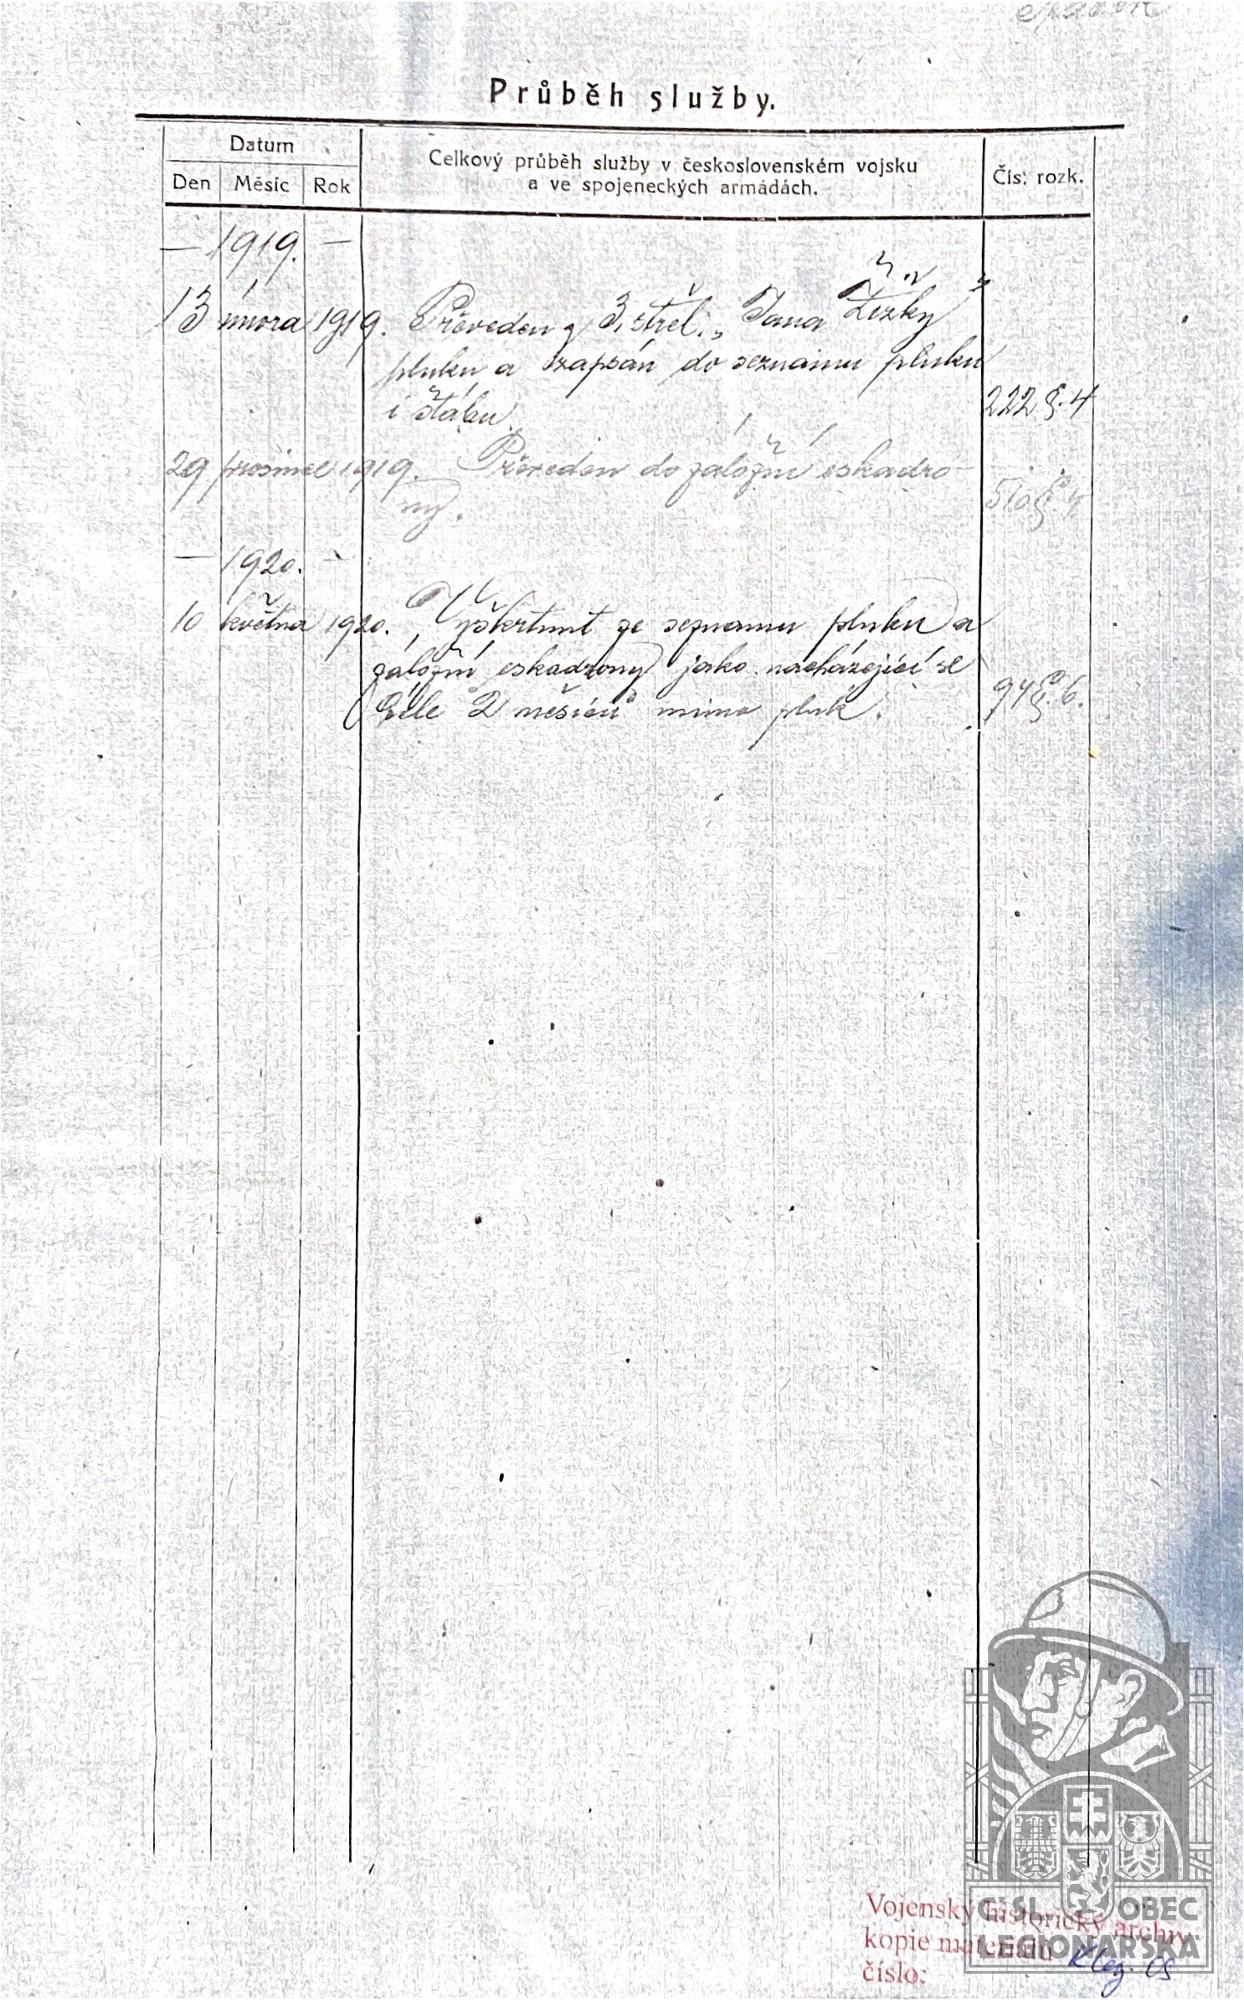 Průběh služby.
Datum
Den Měsíc Rok
Celkový průběh služby v československém vojsku
a ve spojeneckých armádách.
Čís. rozk.
— 1919. —
13 února 1919. Převeden z 3. střel. „Jana Žižky"
pluku a zapsán do seznamu pluku
i štábu. 222 §. 4
29 prosince 1919. Převeden do záložní eskadro-
ny. 510 §. 4
— 1920. —
10 května 1920. Vyškrtnut ze seznamu pluku a
záložní eskadrony jako nacházející se
déle 2 měsíců mimo pluk. 94 §. 6.
ČSL. OBEC
LEGIONÁŘSKÁ
Vojenský historický archiv
kopie materiálů
číslo: